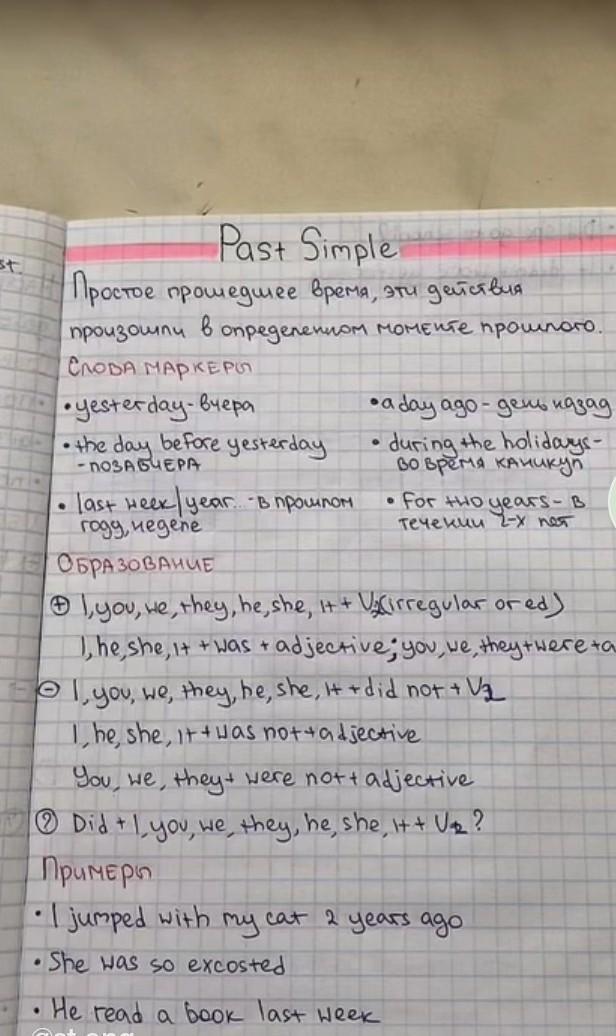 st
Past Simple
Простое прошедшее время, эти действия
произошли в определенном моменте прошлого.
Слова маркеры
• yesterday - вчера
• the day before yesterday
- позавчера
• last week/year... - в прошлом
году, неделе
• a day ago - день назад
• during the holidays -
во время каникул
• for two years - в
течении 2-х лет
Образование
+ I, you, we, they, he, she, it + V2 (irregular or ed)
I, he, she, it + was + adjective; you, we, they + were + a
- I, you, we, they, he, she, it + did not + V1
I, he, she, it + was not + adjective
You, we, they + were not + adjective
? Did + I, you, we, they, he, she, it + V1?
Примеры
• I jumped with my cat 2 years ago
• She was so excosted
• He read a book last week